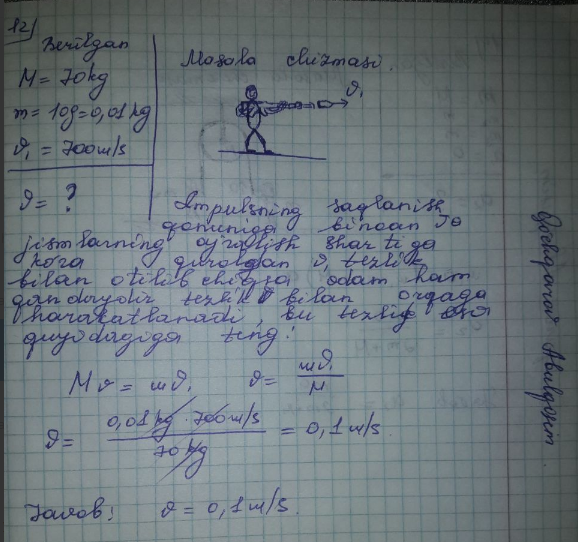 12)
Berilgan
M = 70kg
m = 10g = 0,01kg
ϑ₁ = 700m/s
ϑ = ?
Masala chizmasi.
ϑ₁
Impulsning saqlanish
qonuniga binoan va
jismlarning ajralish shartiga
ko'ra quroldan ϑ₁ tezlik
bilan otilib chiqsa odam ham
qandaydir tezlik ϑ bilan orqaga
harakatlanadi, bu tezlig esa
quyidagiga teng:
Mϑ = mϑ₁ ϑ = mϑ₁/M
ϑ = 0,01kg · 700m/s / 70kg = 0,1m/s.
Javob: ϑ = 0,1m/s.